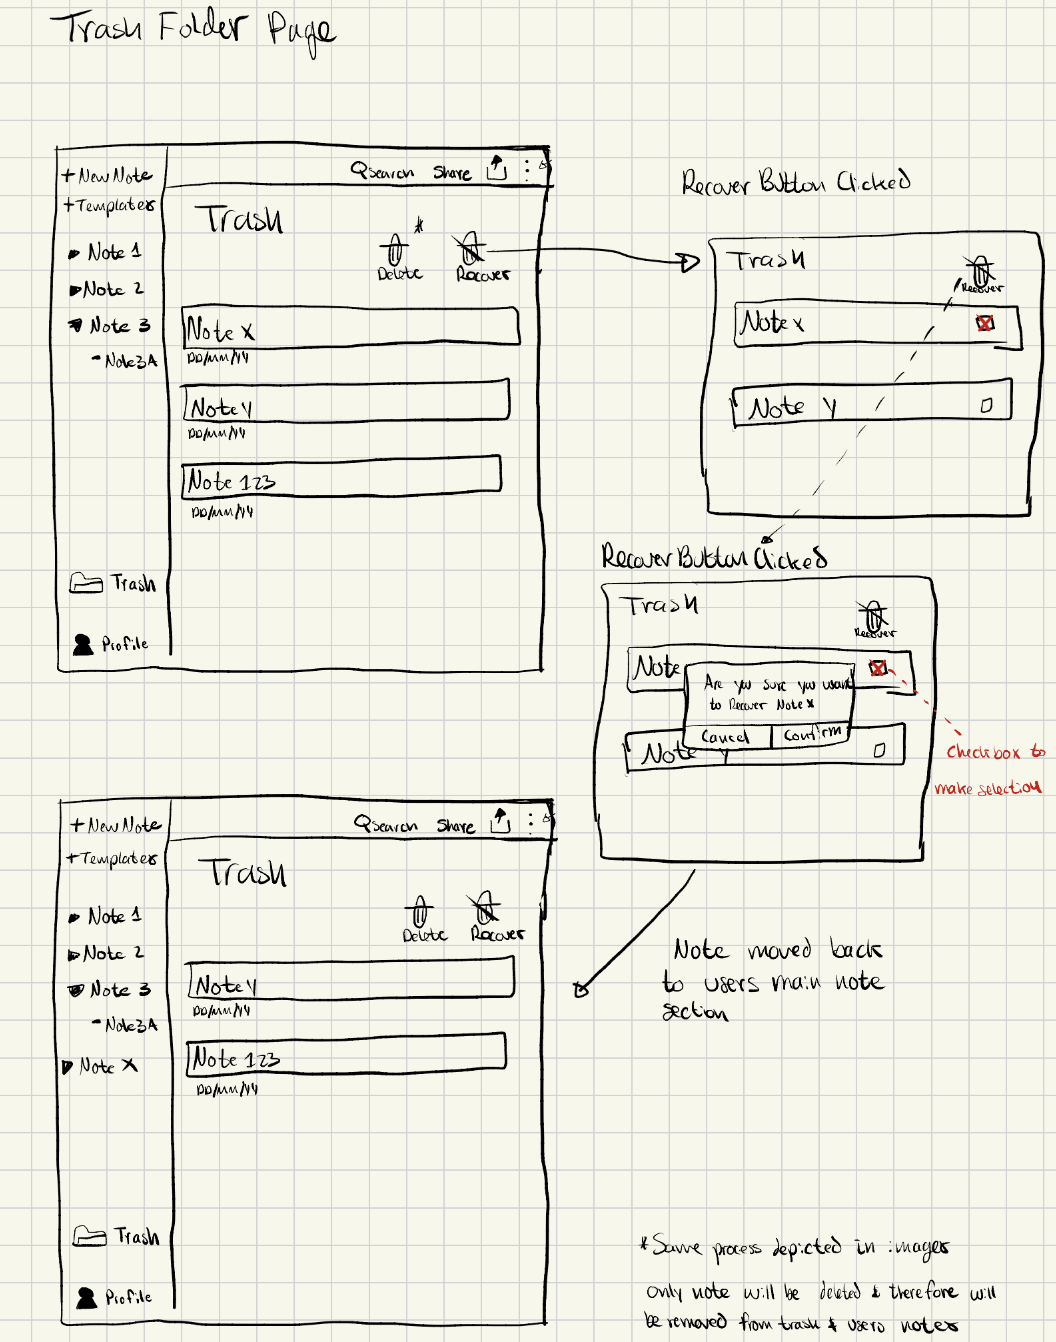 Trash Folder Page
+ New Note
+ Templates
Note 1
Note 2
Note 3
- Note3A
Trash
Profile
Search Share
Trash
*
Delete Recover
Note X
DD/MM/YY
Note Y
DD/MM/YY
Note 123
DD/MM/YY
Recover Button Clicked
Trash
Recover
Note x
Note Y
Recover Button Clicked
Trash
Recover
Note
Are you sure you want
to Recover Note x
Cancel Confirm
Note Y
Checkbox to
make selection
+ New Note
+ Templates
Note 1
Note 2
Note 3
- Note3A
Note X
Trash
Profile
Search Share
Trash
Delete Recover
Note Y
DD/MM/YY
Note 123
DD/MM/YY
Note moved back
to users main note
section
* Same process depicted in images
only note will be deleted & therefore will
be removed from trash & users notes